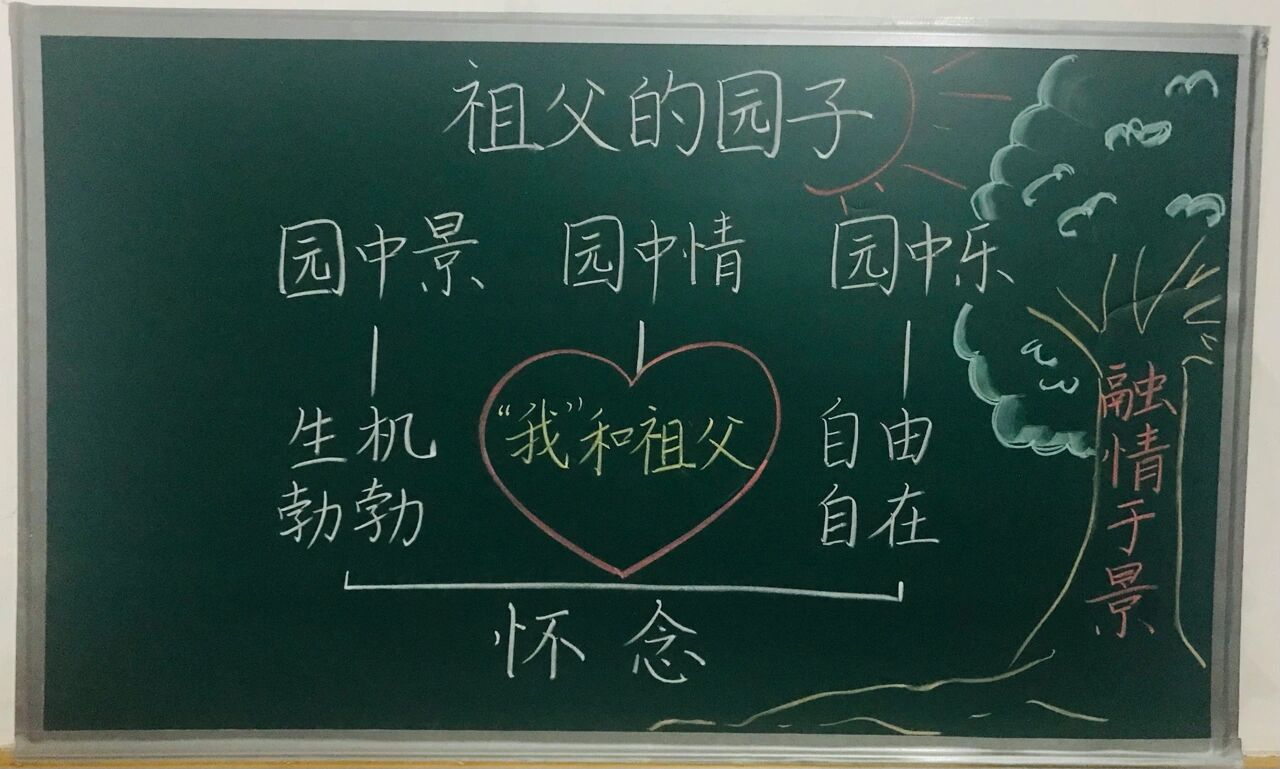 祖父的园子
园中景 园中情 园中乐
生机
勃勃
“我”和祖父
自由
自在
怀念
融情于景